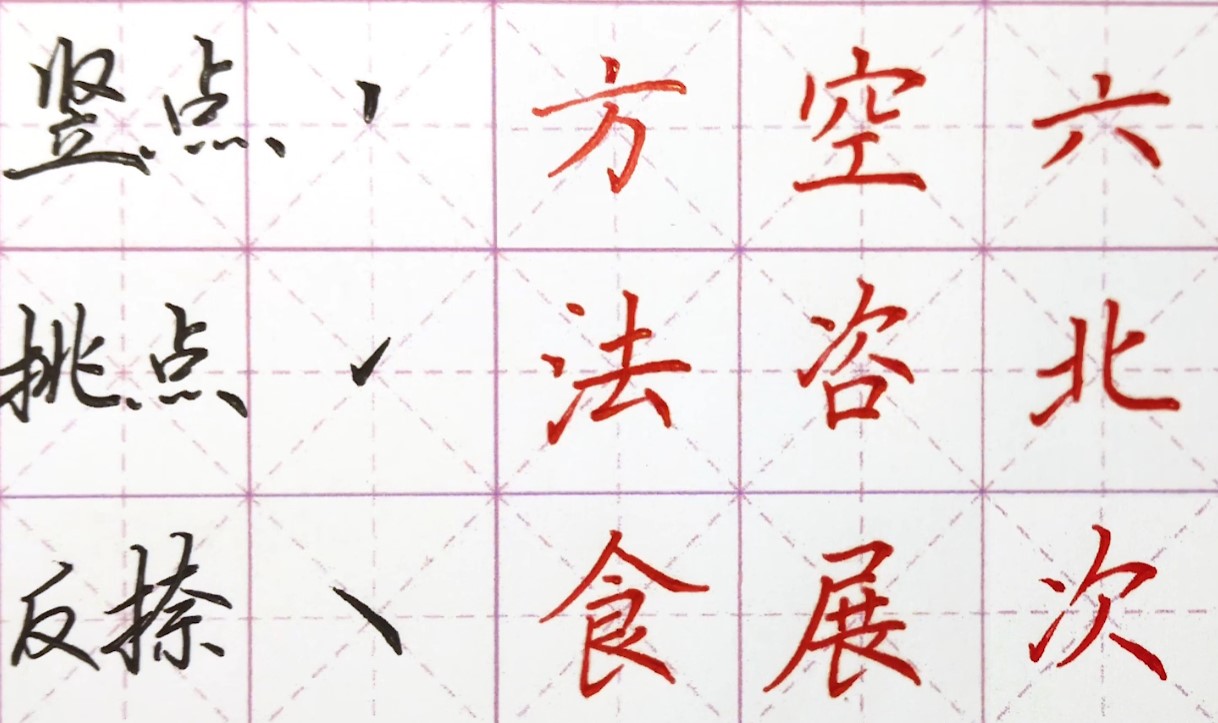 竖点 丶 方 空 六
挑点 ㇀ 法 咨 北
反捺 ㇏ 食 展 次